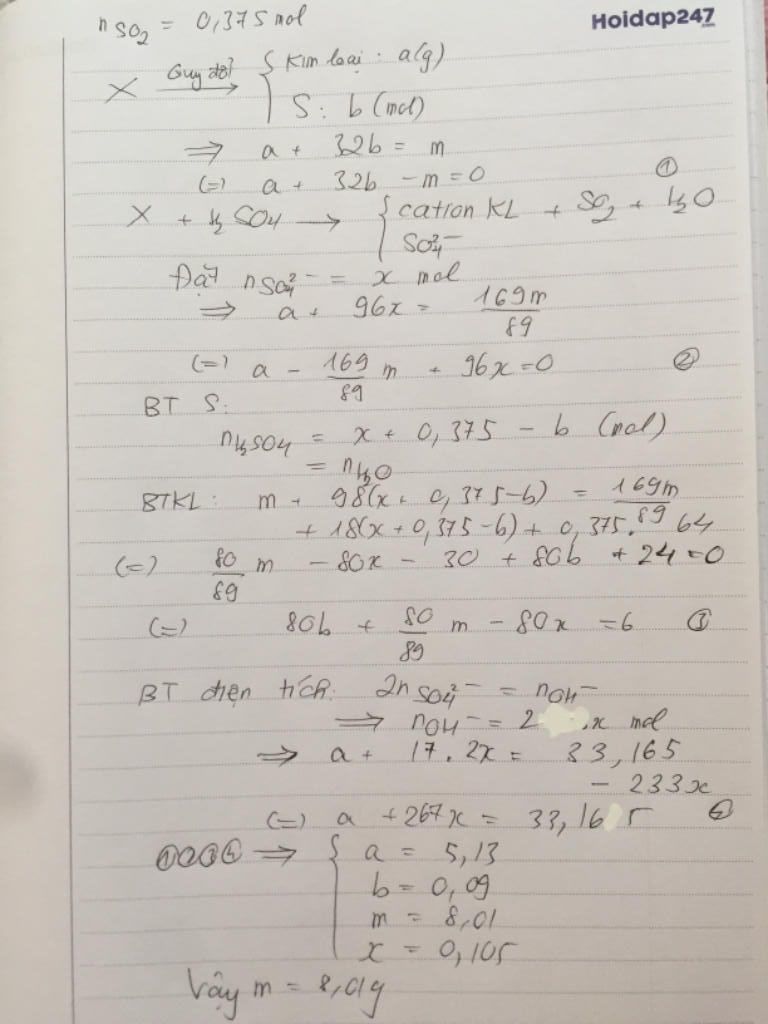 n SO2 = 0,375 mol
Hoidap247
.com
X Quy đổi → { Kim loại : a(g)
S : b (mol)
⇒ a + 32b = m
(=) a + 32b - m = 0 ①
X + H2SO4 → { cation KL + SO2 + H2O
SO4^2-
Đặt nSO4^2- = x mol
⇒ a + 96x = 169m/89
(=) a - 169/89 m + 96x = 0 ②
BT S:
nH2SO4 = x + 0,375 - b (mol)
= nH2O
BTKL: m + 98(x + 0,375-b) = 169m/89
+ 18(x + 0,375-b) + 0,375. 64
(=) 80/89 m - 80x - 30 + 80b + 24 = 0
(=) 80b + 80/89 m - 80x = 6 ③
BT điện tích: 2nSO4^2- = nOH-
⇒ nOH- = 2 .x mol
⇒ a + 17. 2x = 33,165
- 233x
(=) a + 267x = 33,165 ④
①②③④ ⇒ { a = 5,13
b = 0,09
m = 8,01
x = 0,105
Vậy m = 8,01g